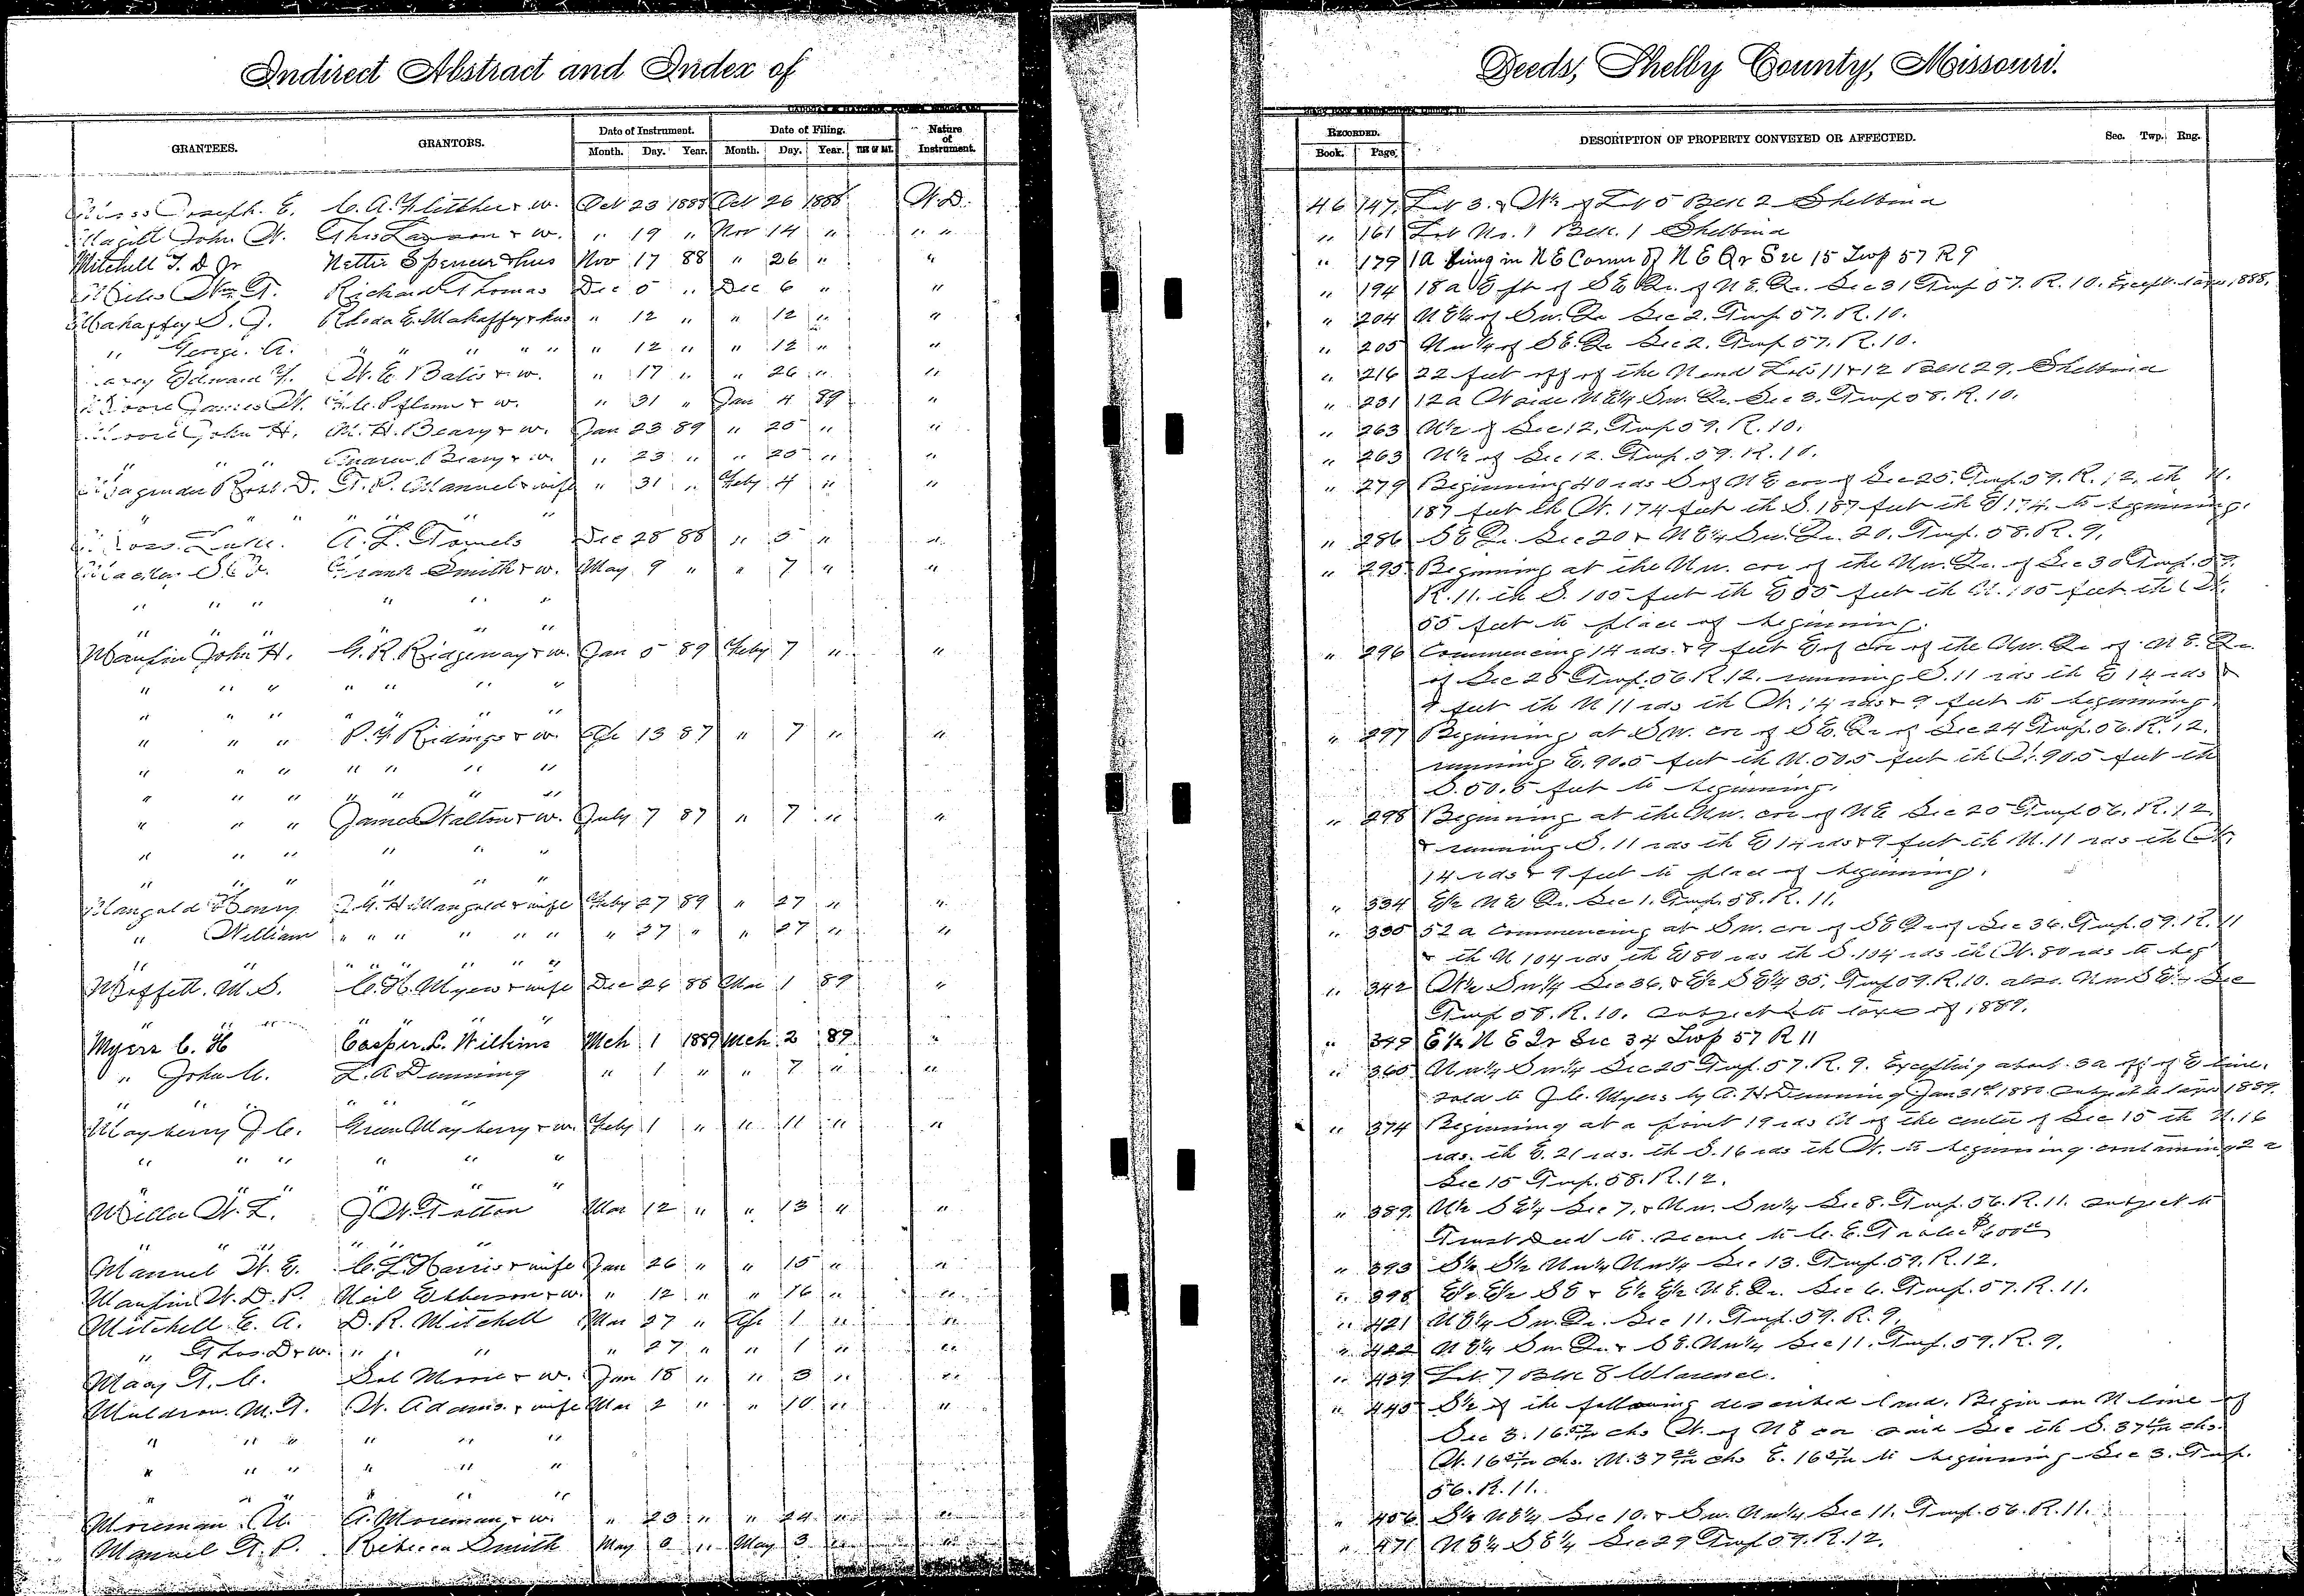 Indirect Abstract and Index of Deeds, Shelby County, Missouri.
GRANTEES. GRANTORS. Date of Instrument. Month. Day. Year. Date of Filing. Month. Day. Year. Nature of Instrument. RECORDED. Book. Page. DESCRIPTION OF PROPERTY CONVEYED OR AFFECTED. Sec. Twp. Rng.
Joseph. E. C. A. & w. Oct 23 1888 Oct 26 1888 W. D. 46 147 Lot 3. & W½ of Lot 5 Blk 2 Shelbina
Magill John W. Thos & w. " 19 " Nov 14 " " " " 161 Lot No. 1 Blk. 1 Shelbina
Mitchell T. D Jr Nettie Spencer & hus Nov 17 88 " 26 " " " 179 1A being in N E Corner of N E Qr Sec 15 Twp 57 R 9
Miles Wm T. Richard Thomas Dec 5 " Dec 6 " " " 194 18 a E pt of S E Qr. of N E. Qr. Sec 31 Twp 57. R. 10. Except taxes 1888.
Mahaffey S. J. Rhoda E. Mahaffey & hus " 12 " " 12 " " " 204 N E¼ of Sw. Qr Sec 2. Twp 57. R. 10.
" George. A. " " " " " " 12 " " 12 " " " 205 Nw¼ of S E. Qr Sec 2. Twp 57. R. 10.
Edward Y. W. E. Bates & w. " 17 " " 26 " " " 216 22 feet off of the N end Lots 11 & 12 Blk 29. Shelbina
Moore James W. & w. " 31 " Jan 4 89 " " 231 12 a W side N E¼ Sw. Qr. Sec 3. Twp 58. R. 10.
Moore John H. M. H. Beary & w. Jan 23 89 " 25 " " " 263 N½ of Sec 12. Twp 59. R. 10.
" " " Beary & w. " 23 " " 25 " " " 263 N½ of Sec 12. Twp. 59. R. 10.
Magruder Robt. D. T. P. Mannel & wife " 31 " Feby 4 " " " 279 Beginning 40 rds S of N E cor of Sec 25. Twp. 59. R. 12. th N.
" " " " " " " 187 feet th W. 174 feet th S. 187 feet th E 174. to beginning.
A. L. Towels Dec 28 88 " 5 " " " 286 S E Qr. Sec 20 & N E¼ Sw. Qr. 20. Twp. 58. R. 9.
Frank Smith & w. May 9 " " 7 " " " 295 Beginning at the Nw. cor of the Nw. Qr. of Sec 30 Twp. 57.
" " " " " " R. 11. th S. 105 feet th E 55 feet th N. 105 feet th W.
" " " " " " 55 feet to place of beginning.
Maupin John H. G. R. Ridgeway & w. Jan 5 89 Feby 7 " " " 296 Commencing 14 rds. & 9 feet E of cor of the Nw. Qr of N E. Qr.
" " " " " " " of Sec 25 Twp. 56. R. 12. running S. 11 rds th E 14 rds &
" " " " " " " 9 feet th N 11 rds th W. 14 rds & 9 feet to beginning.
" " " P. Y. Ridings & w. Apr 13 87 " 7 " " " 297 Beginning at S W. cor of S E. Qr of Sec 24 Twp. 56. R. 12.
" " " " " " " running E. 90.5 feet th N. 50.5 feet th W. 90.5 feet th
" " " " " " " S. 50.5 feet to beginning.
" " " James Walton & w. July 7 87 " 7 " " " 298 Beginning at the Nw. cor of N E Sec 25 Twp 56. R. 12.
" " " " " " & running S. 11 rds th E 14 rds & 9 feet th N. 11 rds th W.
" " " " " " 14 rds & 9 feet to place of beginning.
Mangold Henry H Mangold & wife Feby 27 89 " 27 " " " 334 E½ N E Qr. Sec 1. Twp. 58. R. 11.
" William " " " " " " " 27 " " 27 " " " 335 52 a Commencing at Sw. cor of S E Qr of Sec 36. Twp. 59. R. 11
" " " " " " " " & th N 104 rds th E 80 rds th S. 104 rds th W. 80 rds to beg
Moffett. M. S. C. H. Myers & wife Dec 26 88 Mar 1 89 " " 342 W½ Sw¼ Sec 36. & E½ S E¼ 35. Twp 59. R. 10. also. Nw S E¼ Sec
" " " " " " Twp 58. R. 10. Subject to taxes of 1889.
Myers C. H Casper. L. Wilkins Mch 1 1889 Mch 2 89 " " 349 E½ N E Qr Sec 34 Twp 57 R 11
" John C. L. A Dunning " 1 " " 7 " " " 360 Nw¼ Sw¼ Sec 25 Twp. 57. R. 9. Excepting about 3 a off of E line.
" " " " " " sold to J. C. Myers by A. H. Dunning Jan 31st 1880. Subject to taxes 1889.
Mayberry J C. Green Mayberry & w. Feby 1 " " 11 " " " 374 Beginning at a point 19 rds W of the center of Sec 15 th N. 16
" " " " " " rds. th E. 21 rds. th S. 16 rds th W. to beginning containing 2 a
" " " " " " Sec 15 Twp. 58. R. 12.
Miller W. L. J W. Totton Mar 12 " " 13 " " " 389 N½ S E¼ Sec 7. & Nw. Sw¼ Sec 8. Twp. 56. R. 11. Subject to
" " " " " " Trust Deed to
Mannel W. E. C. L. Harris & wife Jan 26 " " 15 " " " 393 S½ S½ Nw¼ Nw¼ Sec 13. Twp. 59. R. 12.
Maupin W. D. P. Neil Epperson & w. " 12 " " 16 " " " 398 E½ E½ S E & E½ E½ N E. Qr. Sec 6. Twp. 57. R. 11.
Mitchell E. A. D. R. Mitchell Mar 27 " Apr 1 " " " 421 N E¼ Sw. Qr. Sec 11. Twp. 59. R. 9.
" Thos. D & w. " " " " 27 " " 1 " " " 422 N E¼ Sw Qr. & S E. Nw¼ Sec 11. Twp. 59. R. 9.
T. C. Sol Moore & w. Jan 18 " " 3 " " " 439 Lot 7 Blk 8 Clarence.
Muldrow. M. T. W. Adams & wife Mar 2 " " 10 " " " 445 S½ of the following described land. Begin on N line of
" " " " " " Sec 3. 16 chs W. of N E cor said Sec th S. 37 chs.
" " " " " " W. 16 chs. N. 37 chs E. 16 to beginning Sec 3. Twp.
" " " " " 56. R. 11.
Moreman A. Moreman & w. " 23 " " 24 " " " 456 S½ N E¼ Sec 10. & Sw. Nw¼ Sec 11. Twp. 56. R. 11.
Mannel T. P. Rebecca Smith May 3 " May 3 " " " 471 N E¼ S E¼ Sec 29 Twp 59. R. 12.